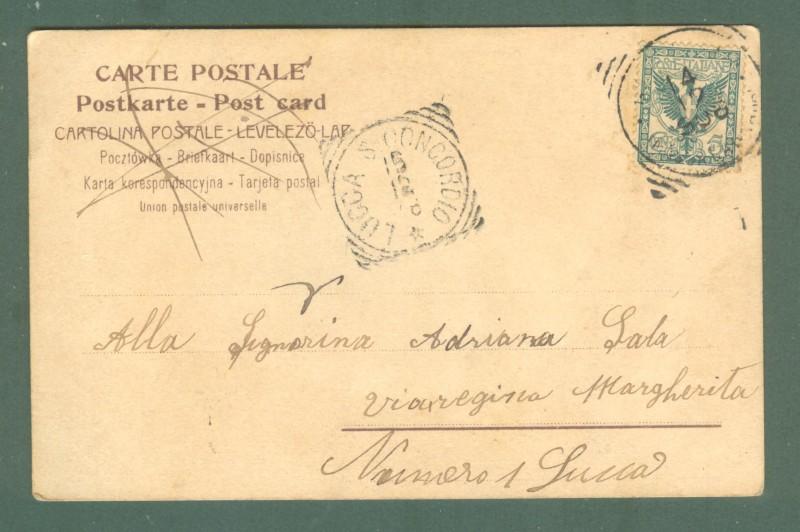 CARTE POSTALE
Postkarte - Post card
CARTOLINA POSTALE - LEVELEZŐ-LAP
Pocztówka - Briefkaart - Dopisnice
Karta korespondencyjna - Tarjeta postal
Union postale universelle
POSTE ITALIANE
5
LUCCA S CONCORDIO
Alla Signorina Adriana Sala
Via regina Margherita
Numero 1 Lucca